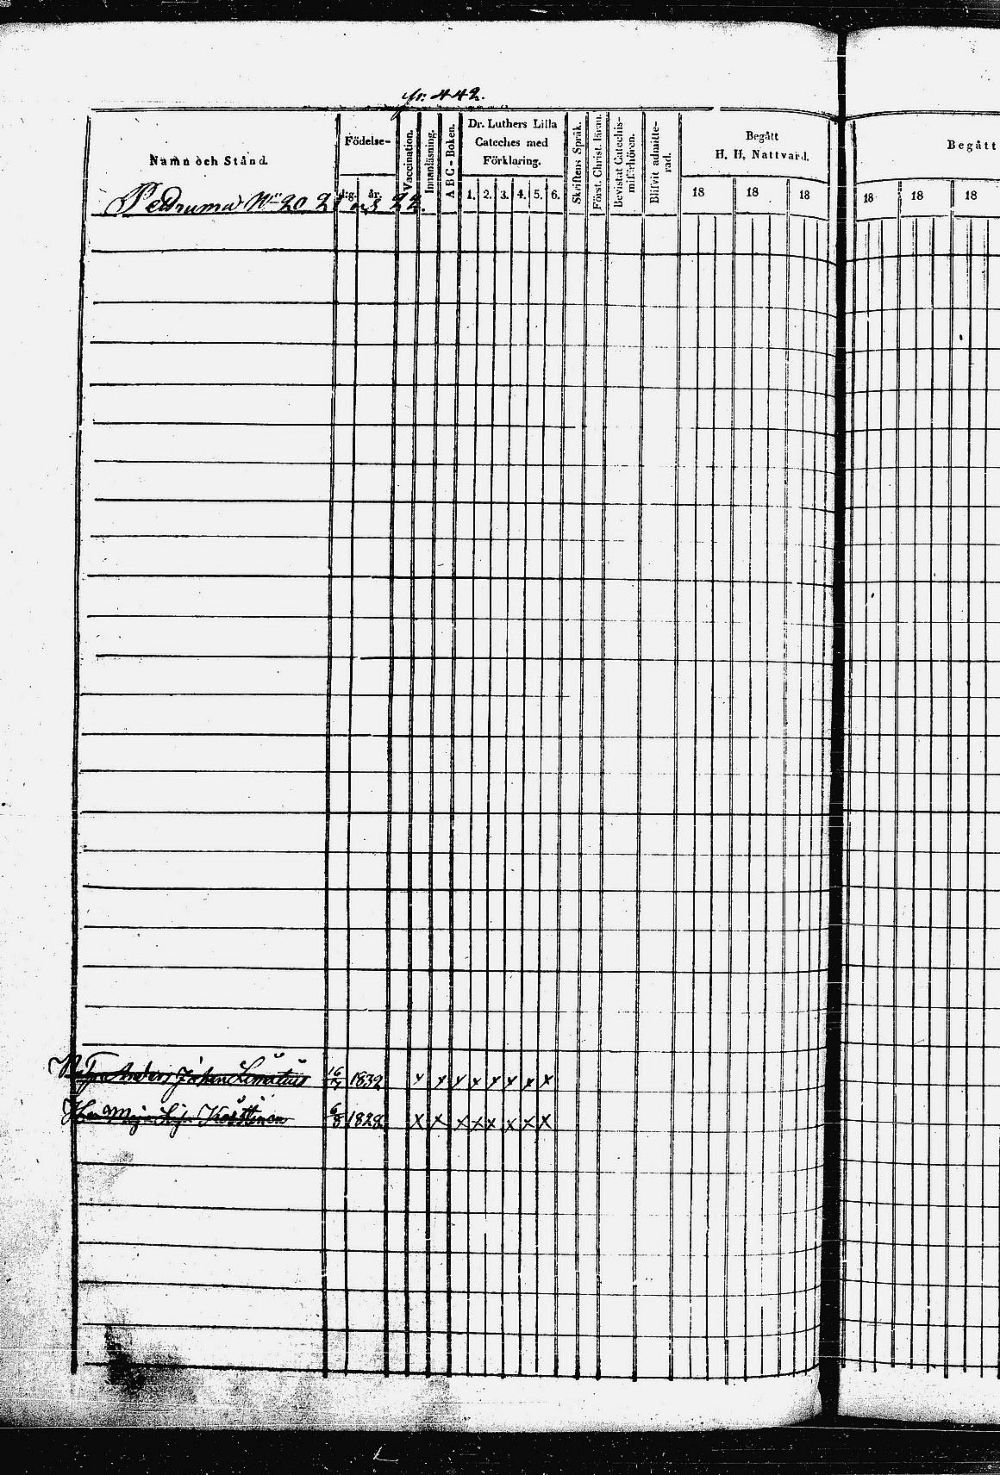 442.
Namn och Stånd.
Födelse-
dag. år.
Vaccination.
Innanläsning.
A B C - Boken.
Dr. Luthers Lilla
Cateches med
Förklaring.
1. 2. 3. 4. 5. 6.
Skriftens Språk.
Först. Christ. läran.
Bevistat Catechis-
miförhören.
Blifvit admitte-
rad.
Begått
H. H. Nattvard.
18 18 18
Begått
18 18 18
20. 21 22.
Anders Johan 1832 x x x x x x x x
Maja 1828 x x x x x x x x